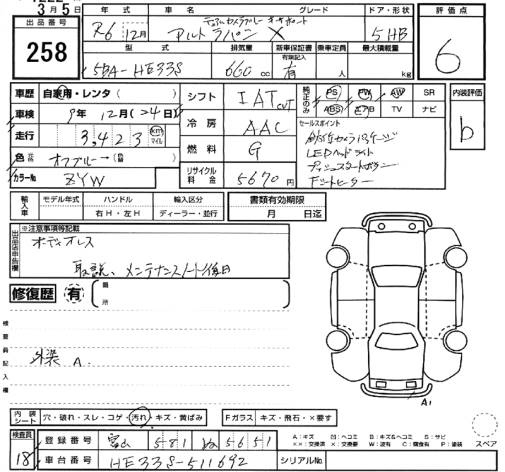 3月5日
出品番号 年式 車名 グレード ドア・形状 評価点
258 R6 12月 アルトラパン X 5HB 6
型式 排気量 新車保証書 乗車定員 最大積載量
有限記入
5BA-HE33S 660cc 有 人 kg
車歴 自家用・レンタ( ) シフト IAT CVT 純正のみ PS PW AW SR 内装評価
車検 9年12月(24日) ABS エアB TV ナビ b
走行 3,423 km マイル 冷房 AAC セールスポイント
色 オフブルー→( ) 燃料 G LEDヘッドライト
カラーNo ZYW リサイクル料金 5670円 プッシュスタートボタン
Fシートヒーター
輸入車 モデル年式 ハンドル 輸入区分 書類有効期限
右H・左H ディーラー・並行 月 日迄
出品店申告欄 ※注意事項等記載
オーディオレス
取説、メンテナンスノート後日
修復歴 有 箇所
検査員記入欄
外装 A
A1
内装シート 穴・破れ・スレ・コゲ・汚れ・キズ・黄ばみ Fガラス キズ・飛石・×要す
検査員 18 登録番号 富山 581 ぬ 5651
A:キズ B:キズ&ヘコミ S:サビ
××:交換済 ×:要交換 W:波有 C:腐食有 P:塗装 スペア
車台番号 HE33S-511692 シリアルNo.